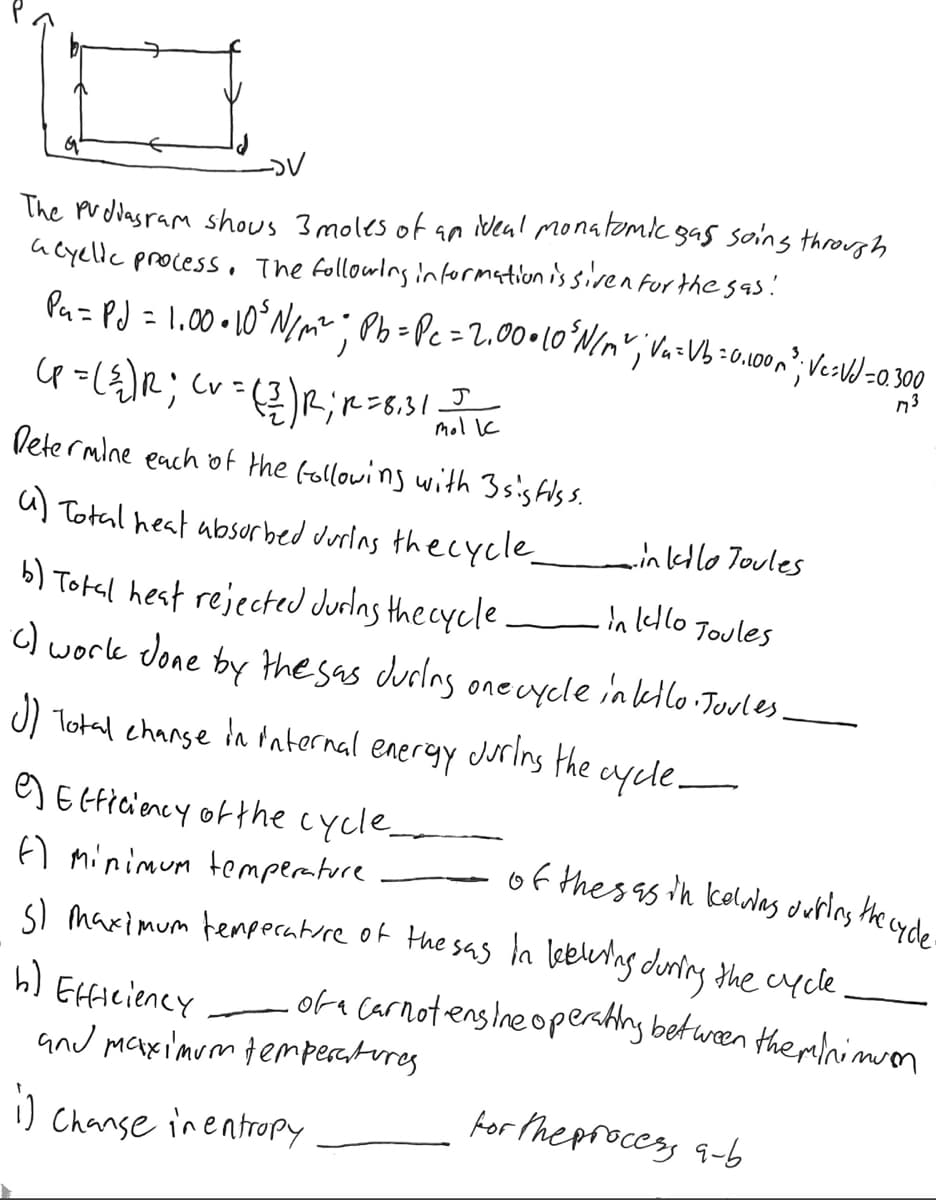 P
b c
a d
V
The PV diagram shows 3 moles of an ideal monatomic gas going through
a cyclic process. The following information is given for the gas:
Pa = Pd = 1.00•10⁵ N/m²; Pb = Pc = 2.00•10⁵ N/m²; Va = Vb = 0.100 m³; Vc = Vd = 0.300
m³
Cp = (5/2)R; Cv = (3/2)R; R = 8.31 J/mol K
Determine each of the following with 3 sig figs.
a) Total heat absorbed during the cycle ____ in kilo Joules
b) Total heat rejected during the cycle ____ in kilo Joules
c) work done by the gas during one cycle in kilo Joules ____
d) Total change in internal energy during the cycle ____
e) Efficiency of the cycle ____
f) minimum temperature ____ of the gas in kelvins during the cycle
g) maximum temperature of the gas in kelvins during the cycle ____
h) Efficiency ____ of a carnot engine operating between the minimum
and maximum temperatures
i) Change in entropy ____ for the process a-b